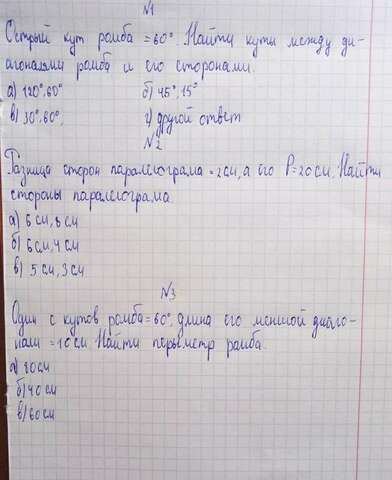 №1
Острый кут ромба = 60°. Найти куты между ди-
агоналями ромба и его сторонами.
а) 120°, 60° б) 45°, 15°
в) 30°, 60°, г) другой ответ
№2
Разница сторон паралелограма = 2 см, а его P = 20 см. Найти
стороны паралелограма
а) 6 см, 8 см
б) 6 см, 4 см
в) 5 см, 3 см
№3
Один с кутов ромба = 60°, длина его меншой диаго-
нали = 10 см. Найти перыметр ромба.
а) 80 см
б) 40 см
в) 60 см